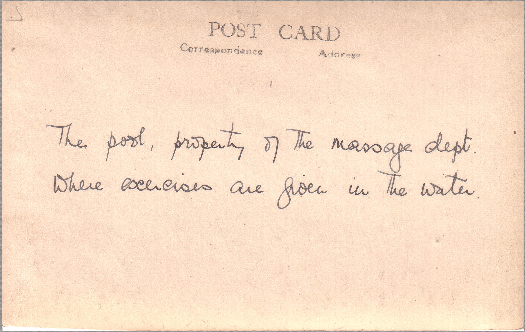 POST CARD
Correspondence Address
The pool, property of the massage dept.
Where exercises are given in the water.